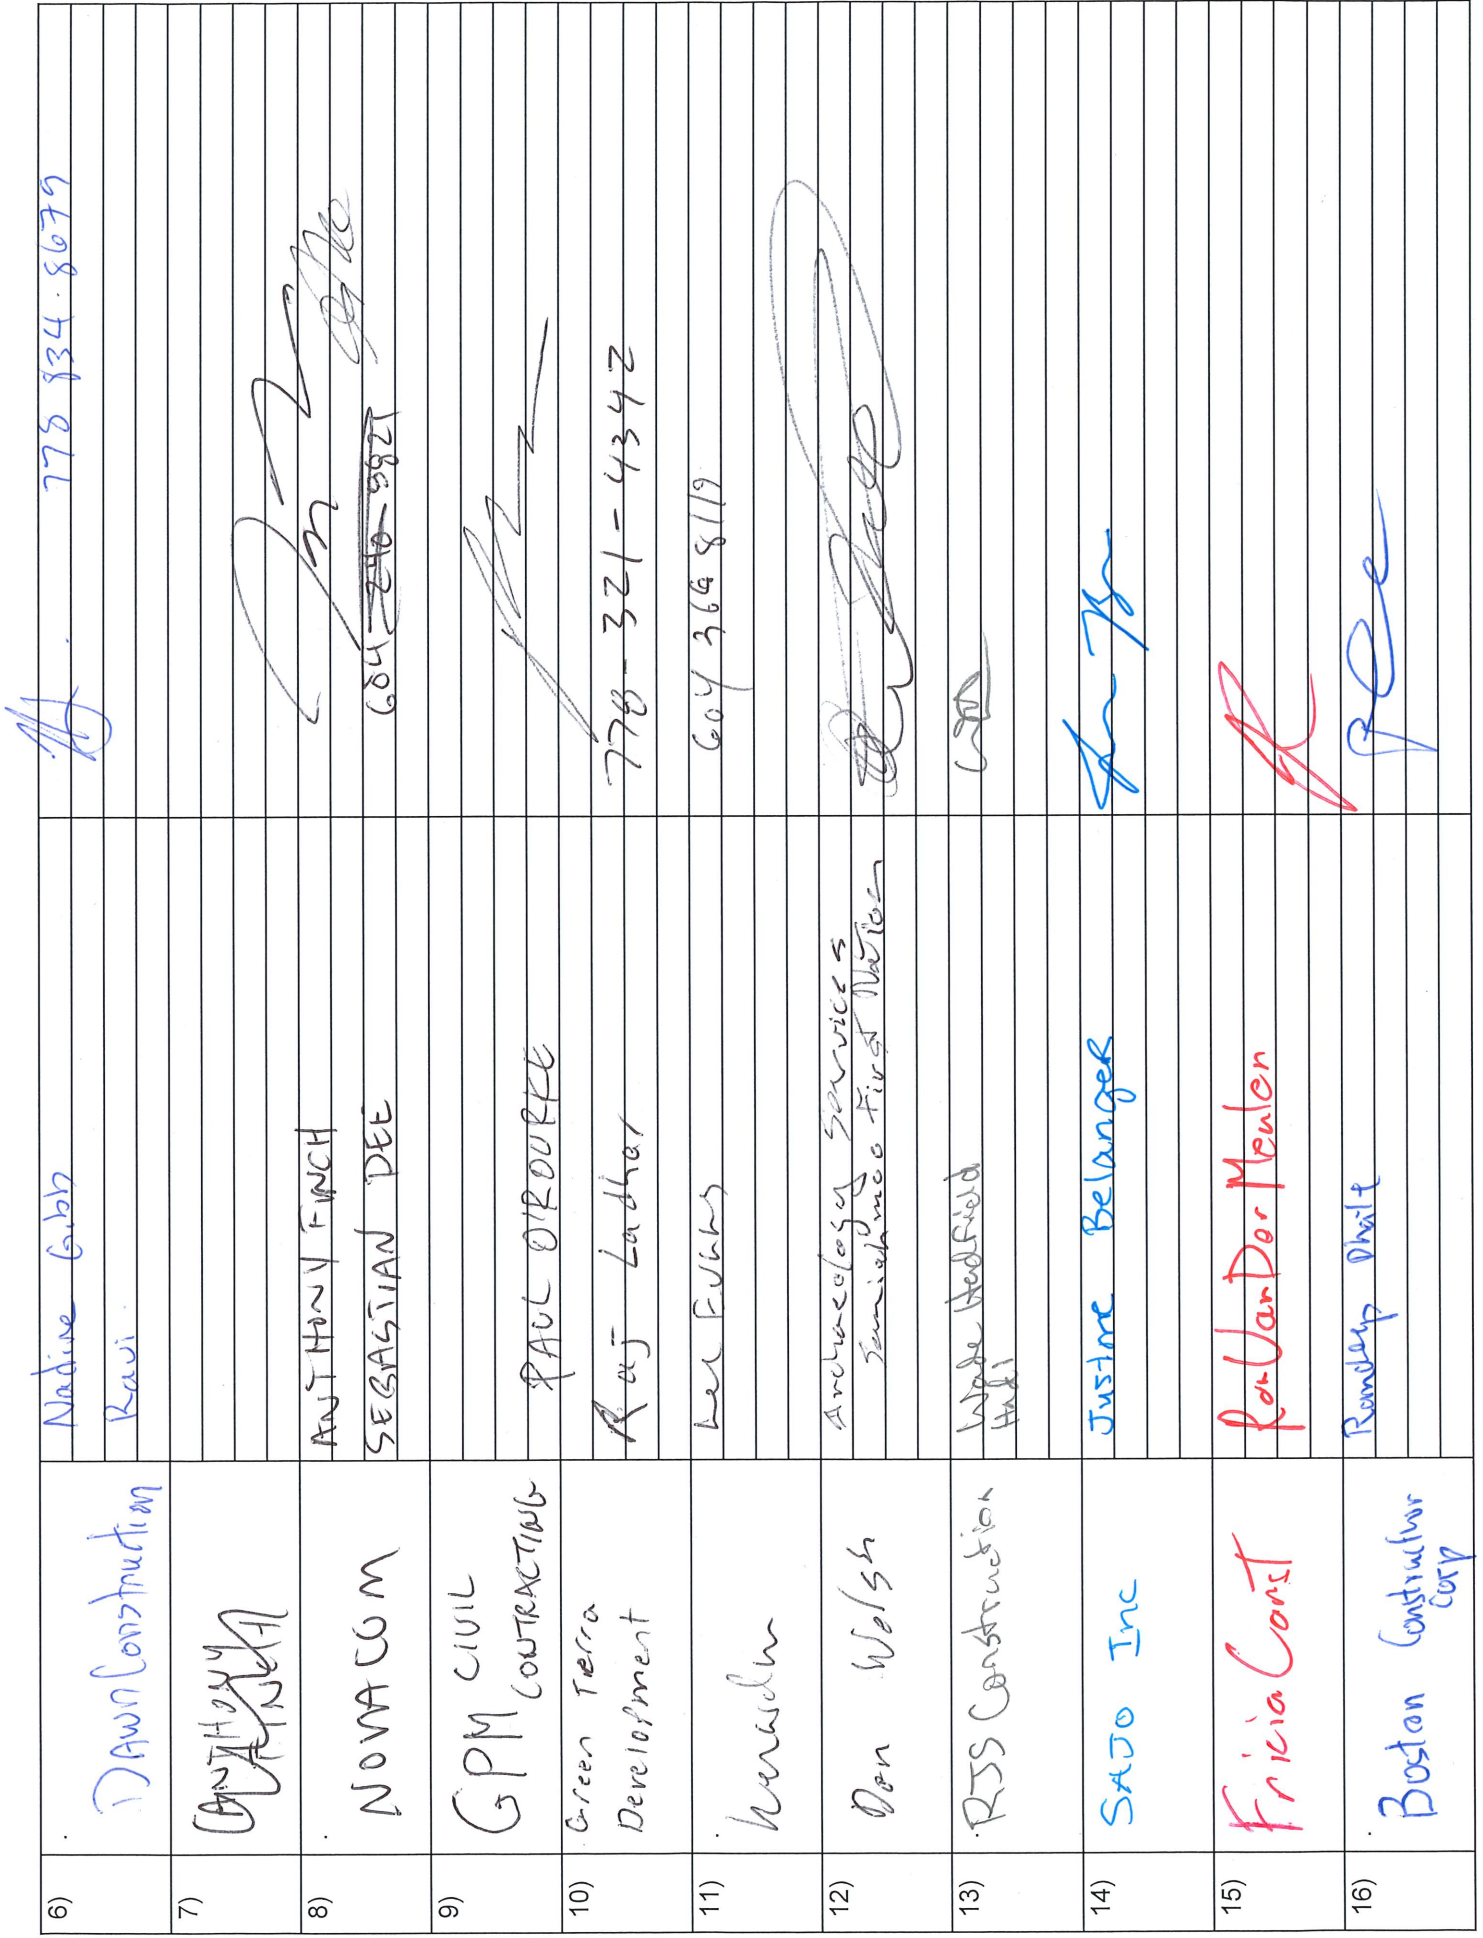 6)
Dawn Construction
Nadine Gibb
Ravi
778 834 · 8679
7)
8)
NOVACOM
ANTHONY FINCH
SEBASTIAN DEE
9)
GPM CIVIL
CONTRACTING
PAUL O'ROURKE
10)
Green Tierra
Development
Raj Ladhar
778-321-4342
11)
604 366 8119
12)
Don Welsh
Archaeology Services
Semiahmoo First Nation
13)
RJS Construction
Wade Hadfield
14)
SAJO Inc
Justine Belanger
15)
Fricia Const
Ron Van Der Meulen
16)
Boston Construction
Corp
Randeep